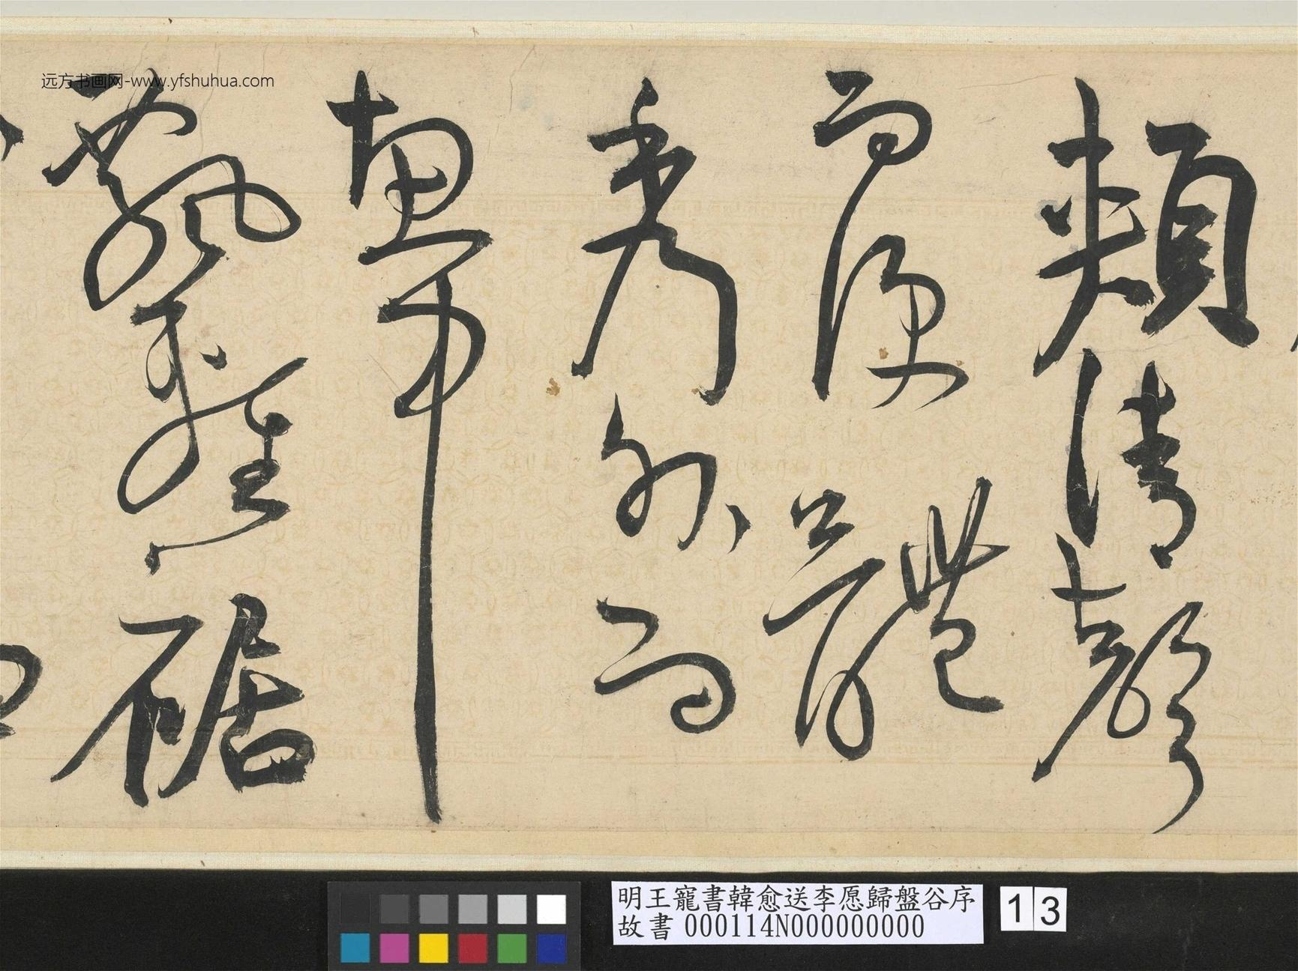 远方书画网-www.yfshuhua.com
頰清聲
而便體
秀外而
惠中
飄輕裾
明王寵書韓愈送李愿歸盤谷序
故書 000114N000000000
13